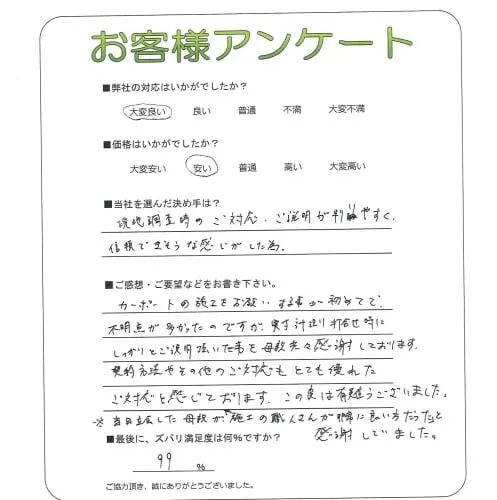 お客様アンケート
■弊社の対応はいかがでしたか？
大変良い 良い 普通 不満 大変不満
■価格はいかがでしたか？
大変安い 安い 普通 高い 大変高い
■当社を選んだ決め手は？
現地調査時のご対応・ご説明が判りやすく、
信頼できそうな感じがした為。
■ご感想・ご要望などをお書き下さい。
カーポートの施工をお願いする事が初めてで、
不明点が多かったのですが、実寸計測り打合せ時に
しっかりとご説明頂いた事を母親共々感謝しております。
契約方法やその他のご対応もとても優れた
ご対応と感じております。この度は有難うございました。
※当日立会した母親が施工の職人さんが非常に良い方だったと
感謝していました。
■最後に、ズバリ満足度は何％ですか？
99 ％
ご協力頂き、誠にありがとうございました。